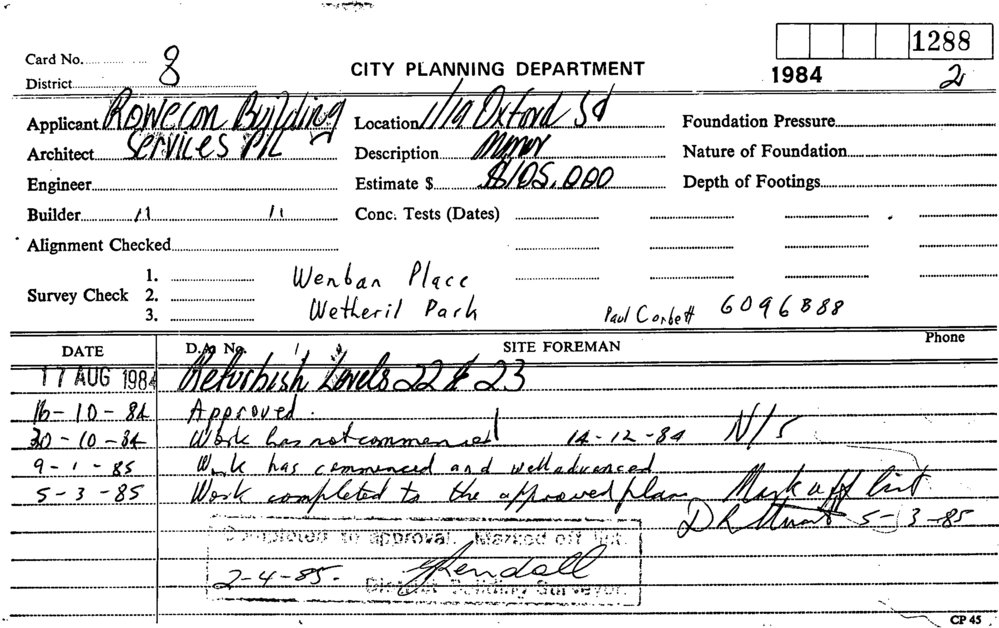 1288
Card No. 8
CITY PLANNING DEPARTMENT
1984 2
District
Applicant Rowecon Building Location 1/19 Oxford St Foundation Pressure
Architect Services P/L Description Minor Nature of Foundation
Engineer Estimate $ $105,000 Depth of Footings
Builder 11 11 Conc. Tests (Dates)
Alignment Checked
1.
Survey Check 2.
3.
Wenban Place
Wetheril Park Paul Corbett 6096888
DATE D.A. No. SITE FOREMAN Phone
17 AUG 1984 Refurbish Levels 22 & 23
16-10-84 Approved.
30-10-84 Work has not commenced 14-12-84 N/S
9-1-85 Work has commenced and well advanced
5-3-85 Work completed to the approved plan Mark off list
5-3-85
Completed to approval. Marked off list.
2-4-85. Kendall
District Building Surveyor.
CP 45